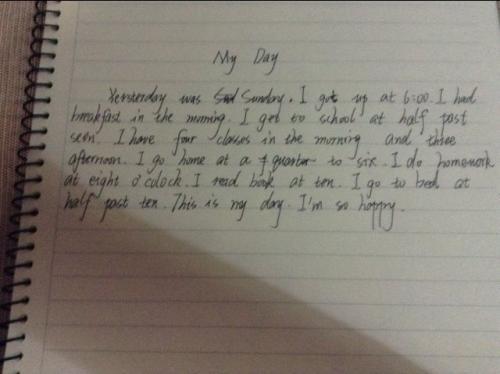 My Day
Yersterday was Sunday. I got up at 6:00. I had
breakfast in the morning. I get to school at half past
seen. I have four classes in the morning and three
afternoon. I go home at a quarter to six. I do homework
at eight o'clock. I read book at ten. I go to bed at
half past ten. This is my day. I'm so happy.